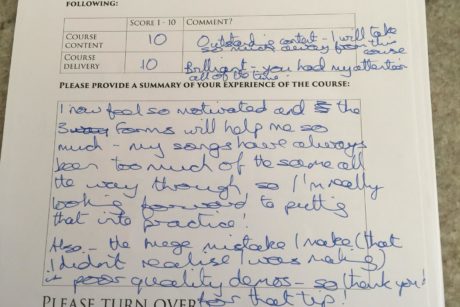 FOLLOWING:
SCORE 1 - 10 COMMENT?
COURSE CONTENT 10 Outstanding content - I will take so much away from this course
COURSE DELIVERY 10 Brilliant - you had my attention all of the time!
PLEASE PROVIDE A SUMMARY OF YOUR EXPERIENCE OF THE COURSE:
I now feel so motivated and the
3 forms will help me so
much - my songs have always
been too much of the same all
the way through, so I'm really
looking forward to putting
that into practice!
Also - the mega mistake I make (that
I didn't realise I was making)
is poor quality demos - so thank you
for that tip!
PLEASE TURN OVER